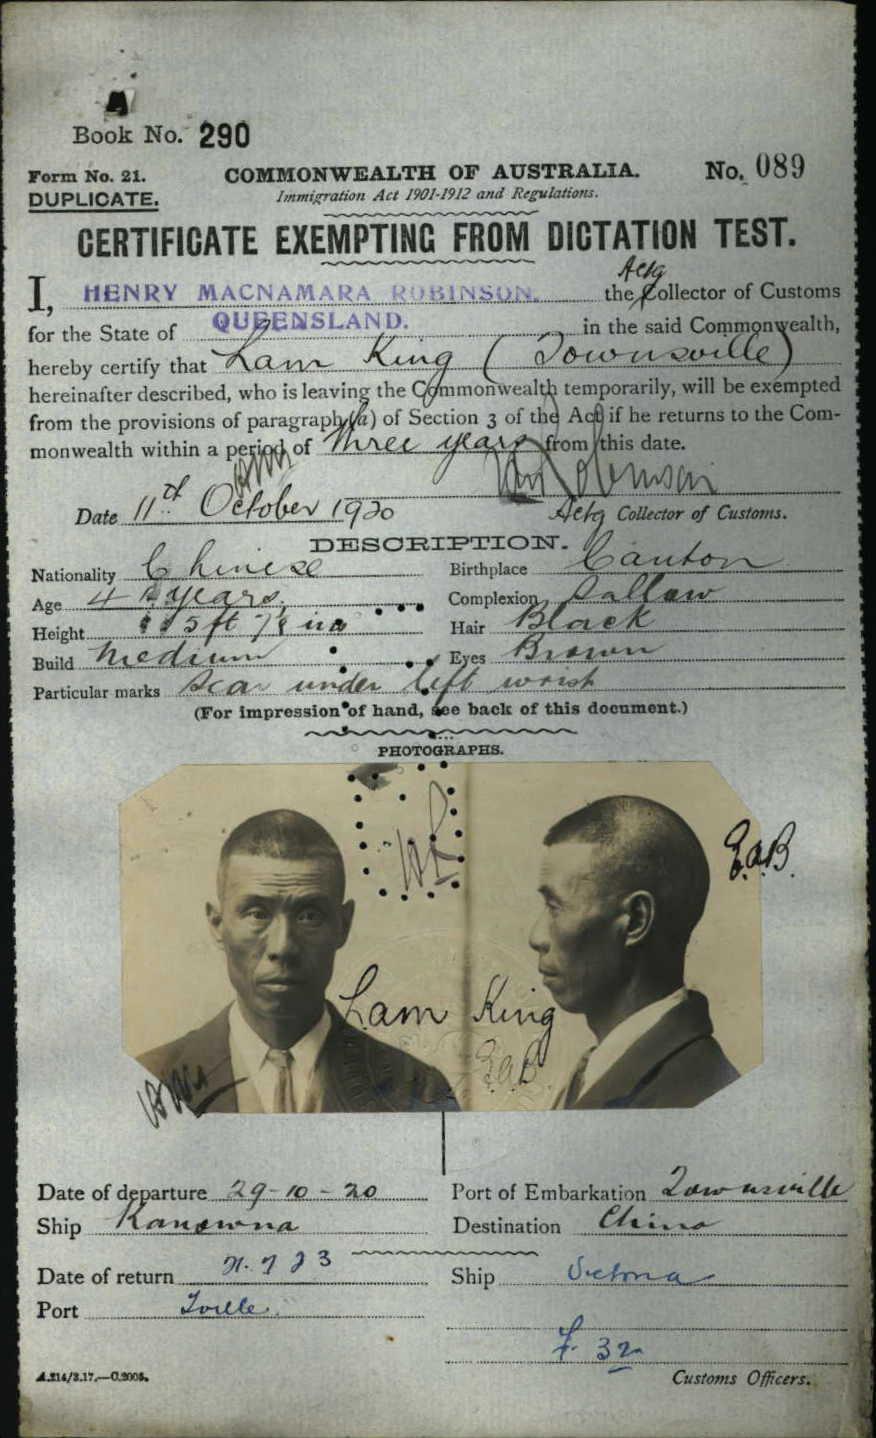 Book No. 290
Form No. 21. COMMONWEALTH OF AUSTRALIA. No. 089
DUPLICATE. Immigration Act 1901-1912 and Regulations.
CERTIFICATE EXEMPTING FROM DICTATION TEST.
Actg
I, HENRY MACNAMARA ROBINSON. the Collector of Customs
for the State of QUEENSLAND. in the said Commonwealth,
hereby certify that Lam King (Townsville)
hereinafter described, who is leaving the Commonwealth temporarily, will be exempted
from the provisions of paragraph (a) of Section 3 of the Act if he returns to the Com-
monwealth within a period of three years from this date.
Date 11th October 1920 Actg Collector of Customs.
DESCRIPTION.
Nationality Chinese Birthplace Canton
Age years Complexion Sallow
Height 5ft in Hair Black
Build Medium Eyes Brown
Particular marks Scar under left wrist
(For impression of hand, see back of this document.)
PHOTOGRAPHS.
E.a.B.
Lam King
E.a.B.
Date of departure 29-10-20 Port of Embarkation Townsville
Ship Kanowna Destination China
Date of return Ship Victoria
Port Tville.
F. 32
A.214/3.17.—C.2005. Customs Officers.